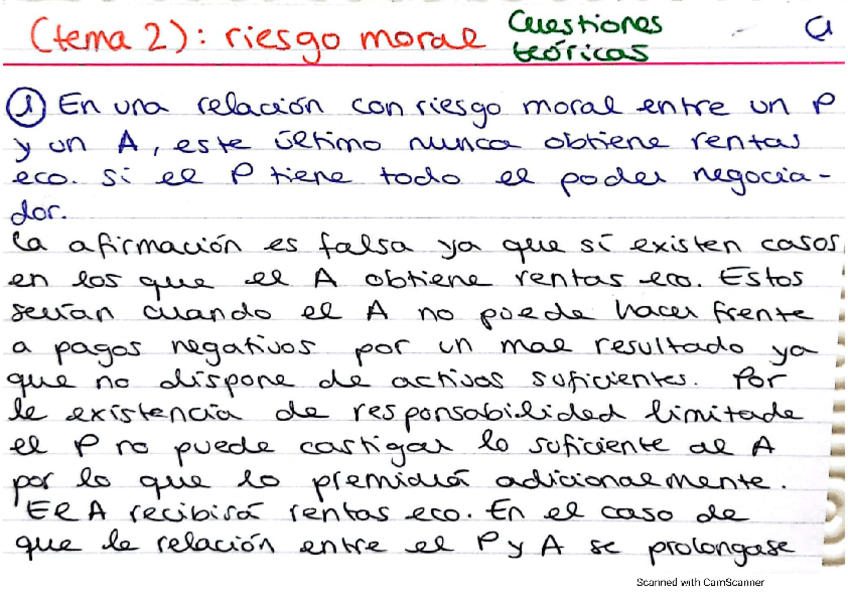 (tema 2): riesgo moral Cuestiones teóricas
① En una relación con riesgo moral entre un P
y un A, este último nunca obtiene rentas
eco. si el P tiene todo el poder negocia-
dor.
La afirmación es falsa ya que sí existen casos
en los que el A obtiene rentas eco. Estos
serían cuando el A no puede hacer frente
a pagos negativos por un mal resultado ya
que no dispone de activos suficientes. Por
la existencia de responsabilidad limitada
el P no puede castigar lo suficiente al A
por lo que lo premiará adicionalmente.
El A recibirá rentas eco. En el caso de
que la relación entre el P y A se prolongase
Scanned with CamScanner